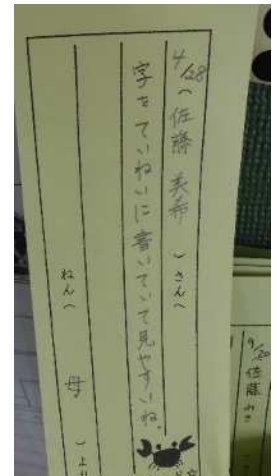 4/28(佐藤 美希 )さんへ
字をていねいに書いていて見やすいね。
ねん( 母 )より
9/20 佐藤 みき